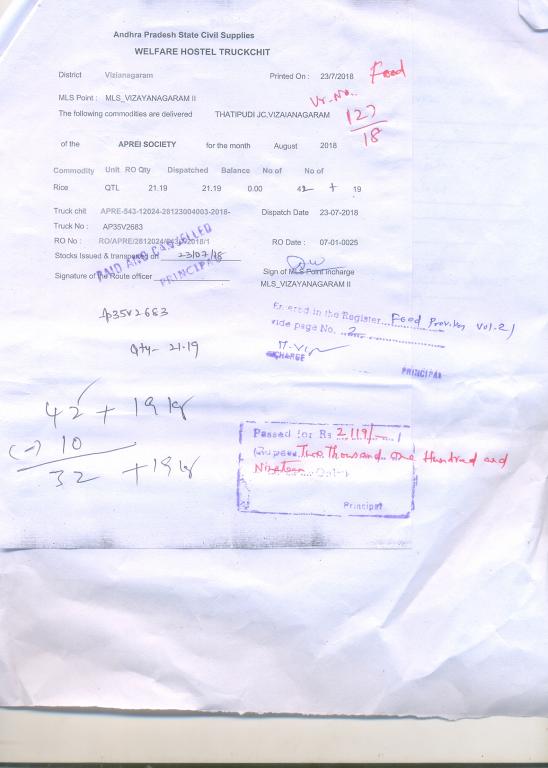 Andhra Pradesh State Civil Supplies
WELFARE HOSTEL TRUCKCHIT
District Vizianagaram Printed On : 23/7/2018 Food
MLS Point : MLS_VIZAYANAGARAM II Vr. No.
The following commodities are delivered THATIPUDI JC,VIZAIANAGARAM 127
18
of the APREI SOCIETY for the month August 2018
Commodity Unit RO Qty Dispatched Balance No of No of
Rice QTL 21.19 21.19 0.00 42 + 19
Truck chit APRE-543-12024-28123004003-2018- Dispatch Date 23-07-2018
Truck No : AP35V2683
RO No : RO/APRE/2812024/ 2018/1 RO Date : 07-01-0025
PAID AND CANCELLED
PRINCIPAL
Stocks Issued & transpored on 23/07/18
Signature of the Route officer Sign of MLS Point Incharge
MLS_VIZAYANAGARAM II
Ap35v2683
Entered in the Register Food Provision Vol.2)
vide page No. 2
Qty- 21.19
CHARGE
PRINCIPAL
42 + 19
(-) 10
32 + 19
Passed for Rs 2119/-
(Rupees Two Thousand One Hundred and
Nineteen
Principal